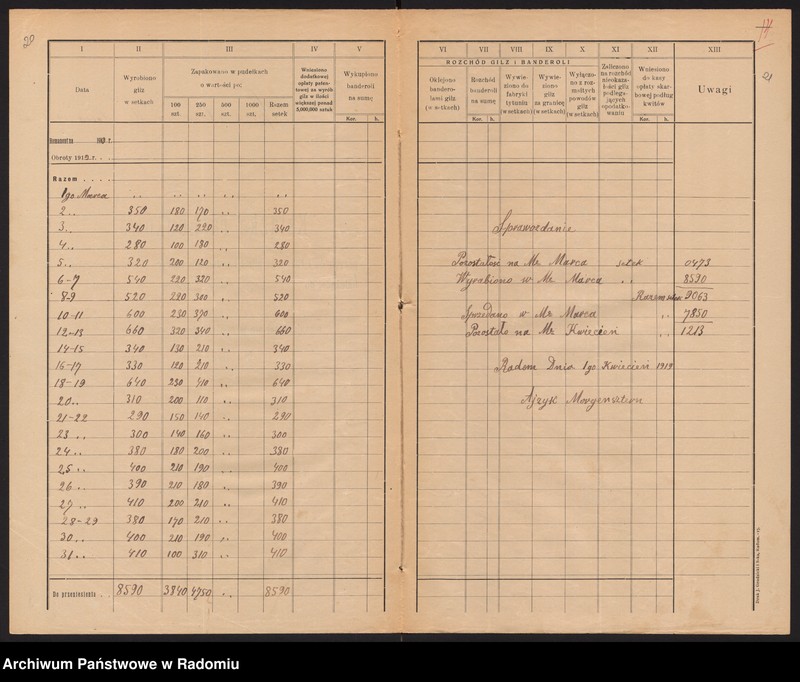 20
I II III IV V
Data
Wyrobiono gilz w setkach
Zapakowano w pudełkach o wartości po:
100 szt. 250 szt. 500 szt. 1000 szt. Razem setek
Wniesiono dodatkowej opłaty patentowej za wyrób gilz w ilości większej ponad 3,000,000 sztuk
Wykupiono banderoli na sumę
Kor. h.
Remanent na 191 r.
Obroty 1919 r. . .
Razem . . . .
1go Marca " " " " "
2 " 350 180 170 " 350
3 " 340 120 220 " 340
4 " 280 100 180 " 280
5 " 320 200 120 " 320
6-7 540 220 320 " 540
8-9 520 220 300 " 520
10-11 600 230 370 " 600
12-13 660 320 340 " 660
14-15 340 130 210 " 340
16-17 330 120 210 " 330
18-19 640 230 410 " 640
20 " 310 200 110 " 310
21-22 290 150 140 " 290
23 " 300 140 160 " 300
24 " 380 180 200 " 380
25 " 400 210 190 " 400
26 " 390 210 180 " 390
27 " 410 200 210 " 410
28-29 380 170 210 " 380
30 " 400 210 190 " 400
31 " 410 100 310 " 410
Do przeniesienia . . 8590 3840 4750 " 8590
21
VI VII VIII IX X XI XII XIII
ROZCHÓD GILZ I BANDEROLI
Oklejono banderolami gilz (w setkach)
Rozchód banderoli na sumę
Kor. h.
Wywieziono do fabryki tytuniu (w setkach)
Wywieziono gilz za granicę (w setkach)
Wyłączono z rozmaitych powodów gilz (w setkach)
Zaliczono na rozchód nieokazałości gilz podlegających opodatkowaniu
Wniesiono do kasy opłaty skarbowej podług kwitów
Kor. h.
Uwagi
Sprawozdanie
Pozostałość na Mc Marca setek 0473
Wyrabiono w Mc Marca " 8590
Razem setek 9063
Sprzedano w Mc Marca " 7850
Pozostało na Mc Kwiecień " 1213
Radom Dnia 1go Kwiecień 1919
Ajzyk Morgensztern
Archiwum Państwowe w Radomiu